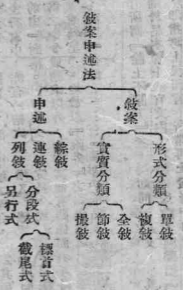 敍案申述法
敍案
形式分類
單敍
複敍
實質分類
全敍
節敍
撮敍
申述
綜敍
連敍
列敍
分段式
標首式
截尾式
另行式